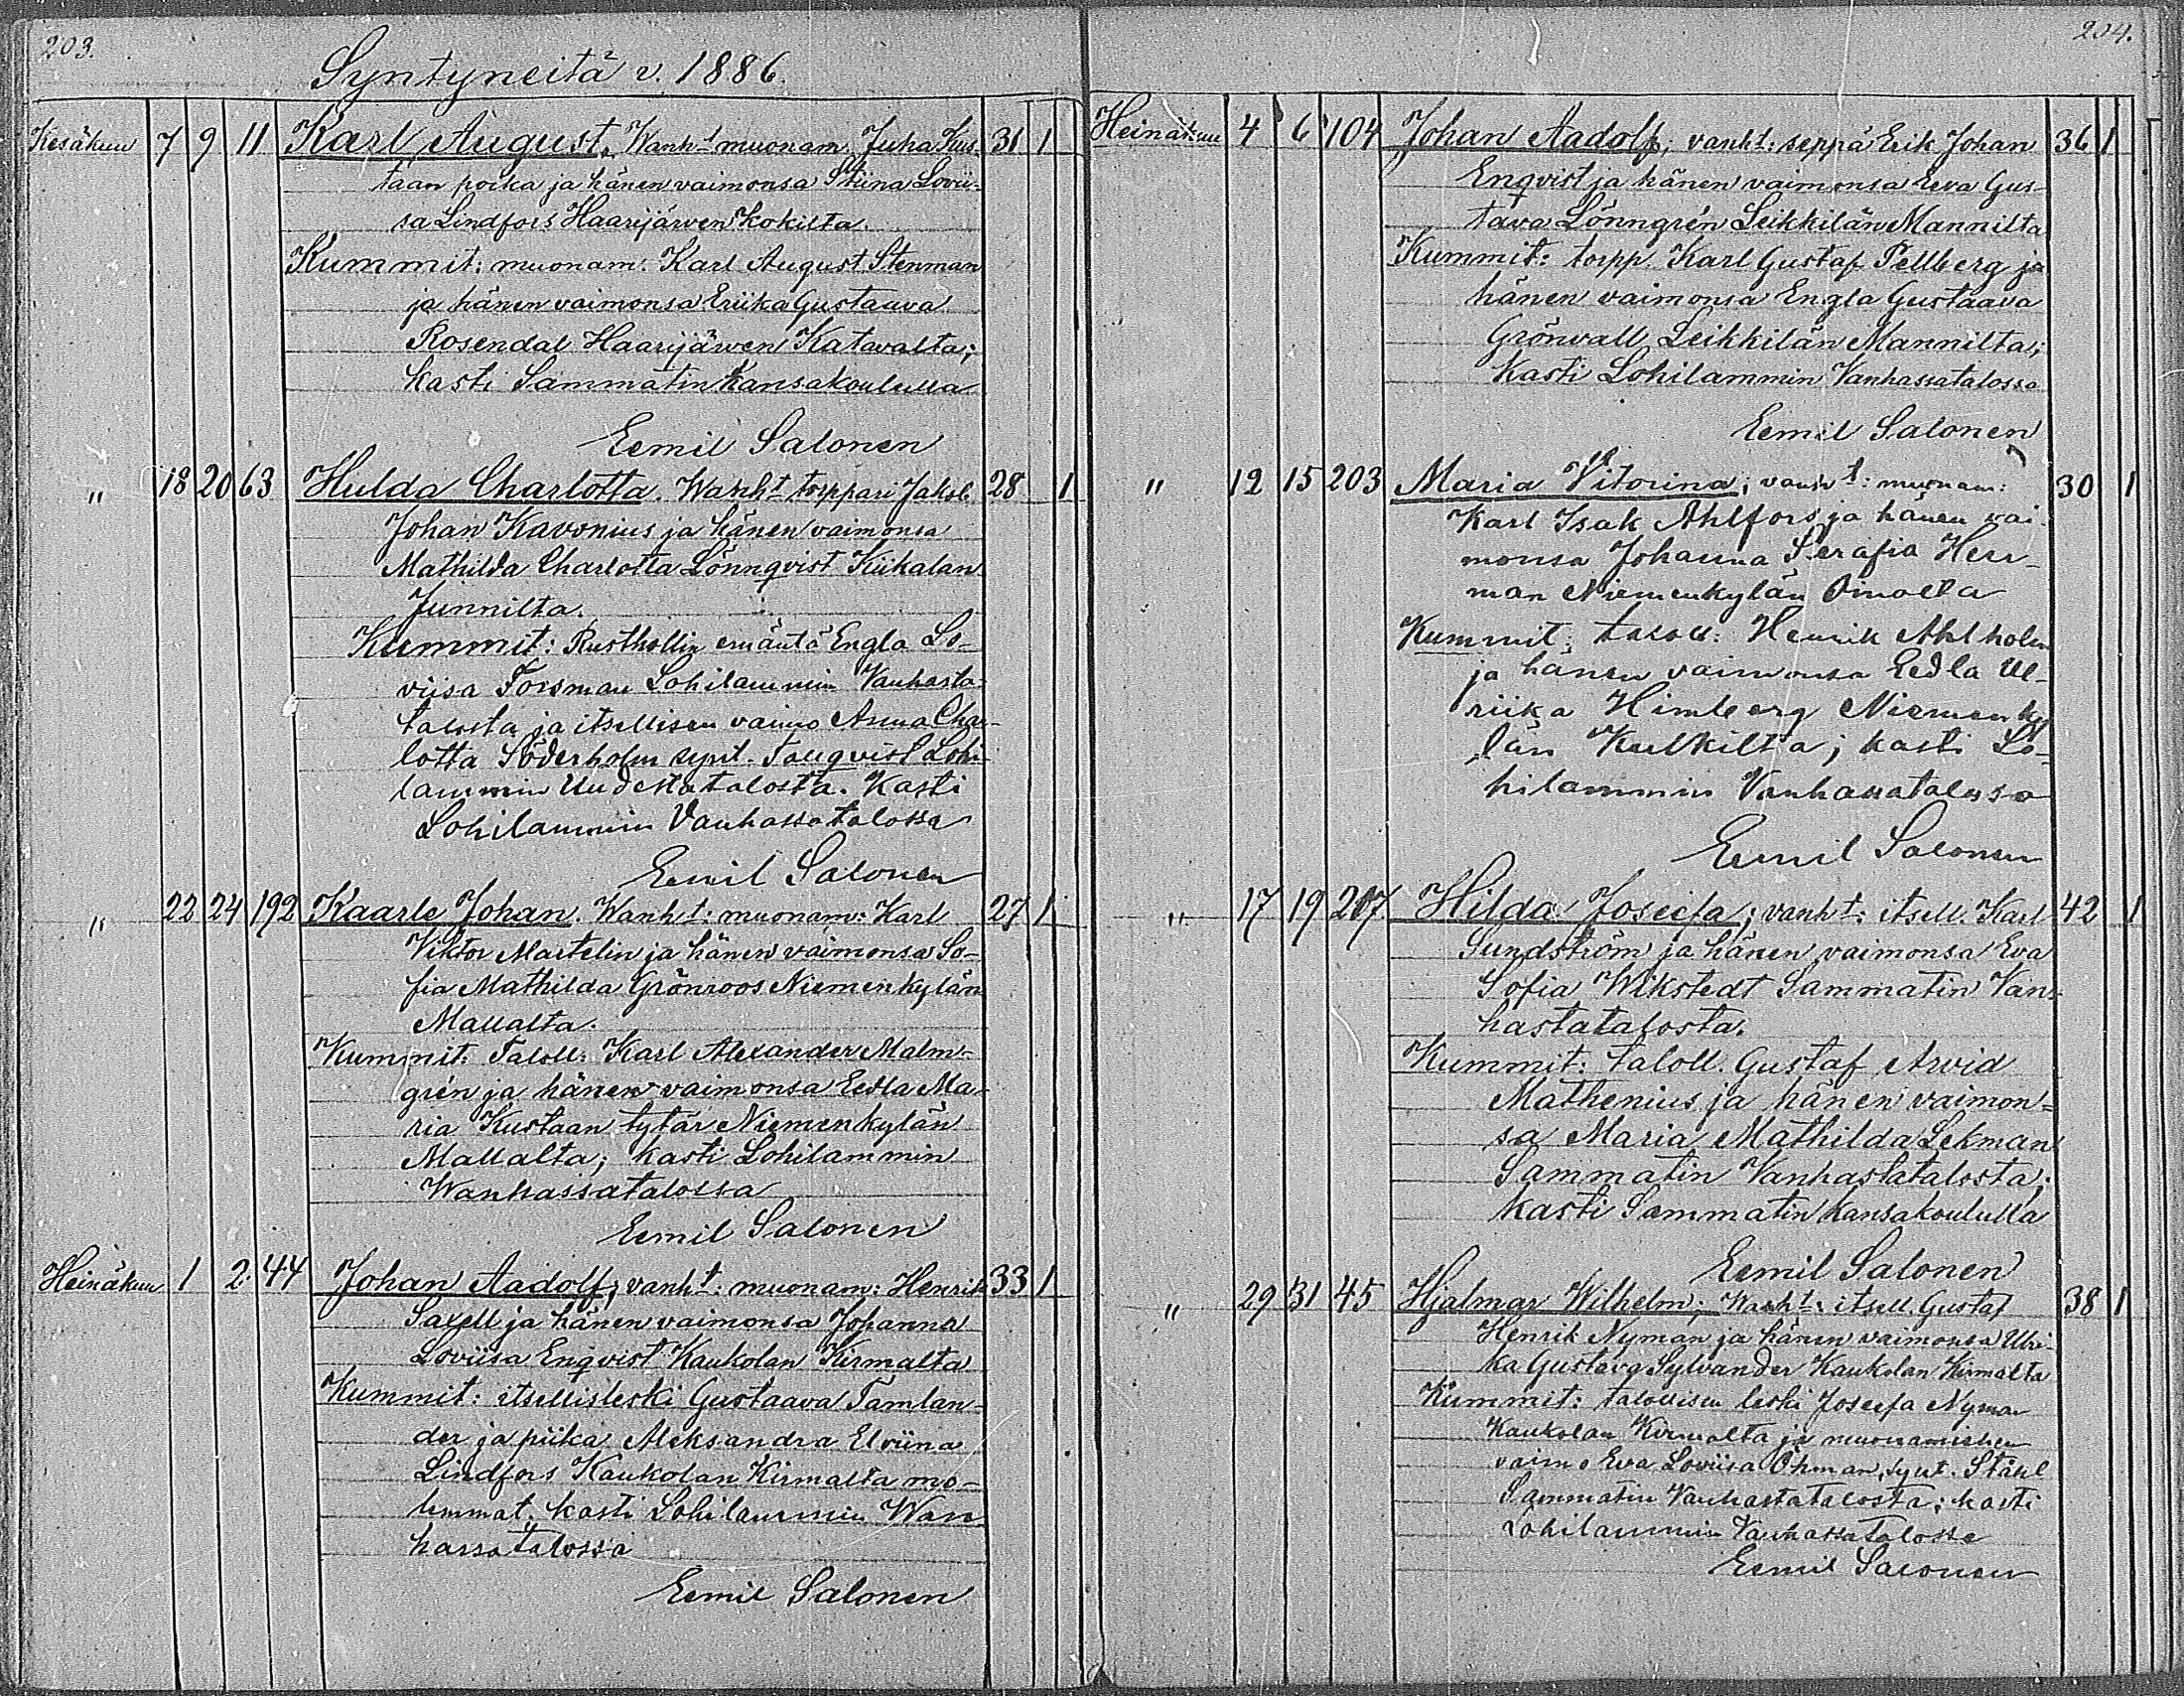 203.
Syntyneitä v. 1886.
Kesäkuu 7 9 11 Karl August. Wanht muonam. Juha Kus- 31 1
taan poika ja hänen vaimonsa Stiina Lovii-
sa Lindfors Haarijärwen Kokilta.
Kummit: muonam. Karl August Stenman
ja hänen vaimonsa Eriika Gustaava
Rosendal Haarijärwen Katavalta;
kasti Sammatin kansakoululla
Eemil Salonen
" 18 20 63 Hulda Charlotta. Wanht torppari Jakob 28 1
Johan Kavonius ja hänen vaimonsa
Mathilda Charlotta Lönnqvist Kiikalan
Junnilta.
Kummit: Rusthollin emäntä Engla Lo-
viisa Forsman Lohilammin Vanhasta-
talosta ja itsellisen vaimo Anna Char-
lotta Söderholm synt. Lohi-
lammin Uudestatalosta. Kasti
Lohilammin Vanhassatalossa
Eemil Salonen
" 22 24 192 Kaarle Johan. Wanht: muonam: Karl 27 1
Viktor Martelin ja hänen vaimonsa So-
fia Mathilda Grönroos Niemenkylän
Mallalta.
Kummit: Taloll: Karl Alexander Malm-
grén ja hänen vaimonsa Eedla Ma-
ria Kustaan tytär Niemenkylän
Mallalta; kasti Lohilammin
Wanhassatalossa
Eemil Salonen
Heinäkuu 1 2 44 Johan Aadolf; vanht: muonam: Henrik 33 1
Saxell ja hänen vaimonsa Johanna
Loviisa Enqvist Kaukolan Kirmalta
Kummit: itsellisleski Gustaava Tamlan-
der ja piika Aleksandra Elviina
Lindfors Kaukolan Kirmalta mo-
lemmat. kasti Lohilammin Wan-
hassatalossa
Eemil Salonen
204.
Heinäkuu 4 6 104 Johan Aadolf; vanht: seppä Erik Johan 36 1
Enqvist ja hänen vaimonsa Eeva Gus-
tava Lönngrén Leikkilän Mannilta
Kummit: torpp. Karl Gustaf Pellberg ja
hänen vaimonsa Engla Gustaava
Grönvall Leikkilän Mannilta;
Kasti Lohilammin Vanhassatalossa
Eemil Salonen
" 12 15 203 Maria Vitorina; vanht: muonam: 30 1
Karl Isak Ahlfors ja hänen vai-
monsa Johanna Serafia Herr-
man Niemenkylän Oinolta
Kummit: taloll: Henrik Ahlholm
ja hänen vaimonsa Eedla Ul-
riika Himberg Niemenky-
län Kulkilta; kasti Lo-
hilammin Vanhassatalossa
Eemil Salonen
" 17 19 207 Hilda Josecfa; vanht: itsell. Karl 42 1
Sundström ja hänen vaimonsa Eva
Sofia Wikstedt Sammatin Van-
hastatalosta.
Kummit: taloll. Gustaf Arvid
Mathenius ja hänen vaimon-
sa Maria Mathilda Lekman
Sammatin Vanhastatalosta;
kasti Sammatin kansakoululla
Eemil Salonen
" 29 31 45 Hjalmar Wilhelm; Wanht: itsell. Gustaf 38 1
Henrik Nyman ja hänen vaimonsa Ulri-
ka Gustava Sylvander Kaukolan Kirmalta
Kummit: talollisen leski Josecfa Nyman
Kaukolan Kirmalta ja muonamiehen
vaimo Eva Loviisa Öhman, synt. Ståhl
Sammatin Vanhastatalosta; kasti
Lohilammin Vanhassatalossa
Eemil Salonen